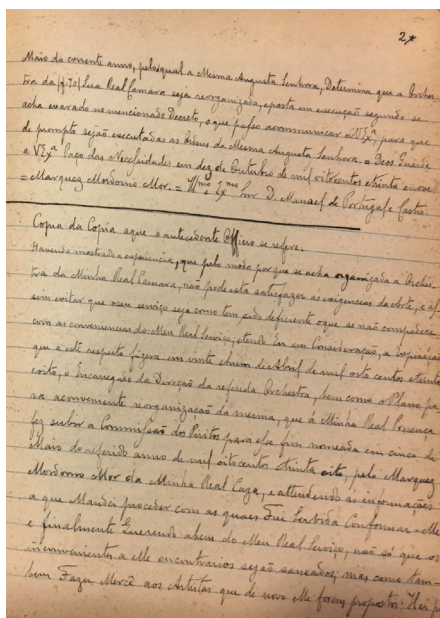 2*
Maio do corrente anno, pelo qual a Mesma Augusta Senhora, Determina que a Orches-
tra da Sua Real Camara seja reorganizada, eposta em execução segundo se
acha exarado no mencionado Decreto, o que passo acommunicar a VExª, para que
de prompto sejão executadas as Ordens da Mesma Augusta Senhora. = Deos Guarde
a VExª Paço das Necessidades em dez de Outubro de mil oitocentos etrinta enove
= Marquez Mordomo Mor. = Illmo e Exmo Snr D. Manoel de Portugal e Castro.
Copia da Copia aque o antecedente Officio se refere.
Havendo mostrado a experiencia, que pelo modo porque se acha organizada a Orches-
tra da Minha Real Camara, não pode esta satisfazer as exigencias da Arte, e
sem evitar que oseu serviço seja como tem sido deficiente oque se não compadece
com as conveniencias do Meu Real Serviço, Eu em Consideração, a Exposição
que a este respeito fizera em vinte ehum de Abril de mil oito centos etrinta
eoito, o Encarregado da Direcção da referida Orchestra, bem como o Plano pa-
ra aconveniente reorganização da mesma, que á Minha Real Presença
fez subir a Commissão de Peritos para esse fim nomeada em cinco de
Maio do referido anno de mil oitocentos etrinta oito, pelo Marquez
Mordomo Mor da Minha Real Caza, e attendendo ás informações
a que Mandei proceder com as quaes Fui Servida Conformar-Me
e finalmente Querendo abem do Meu Real Serviço, não só que os
inconvenientes a elle encontrarios sejão saneados; mas como tam-
bem Fazer Mercê aos Artistas que de novo Me forem propostos: Hei p